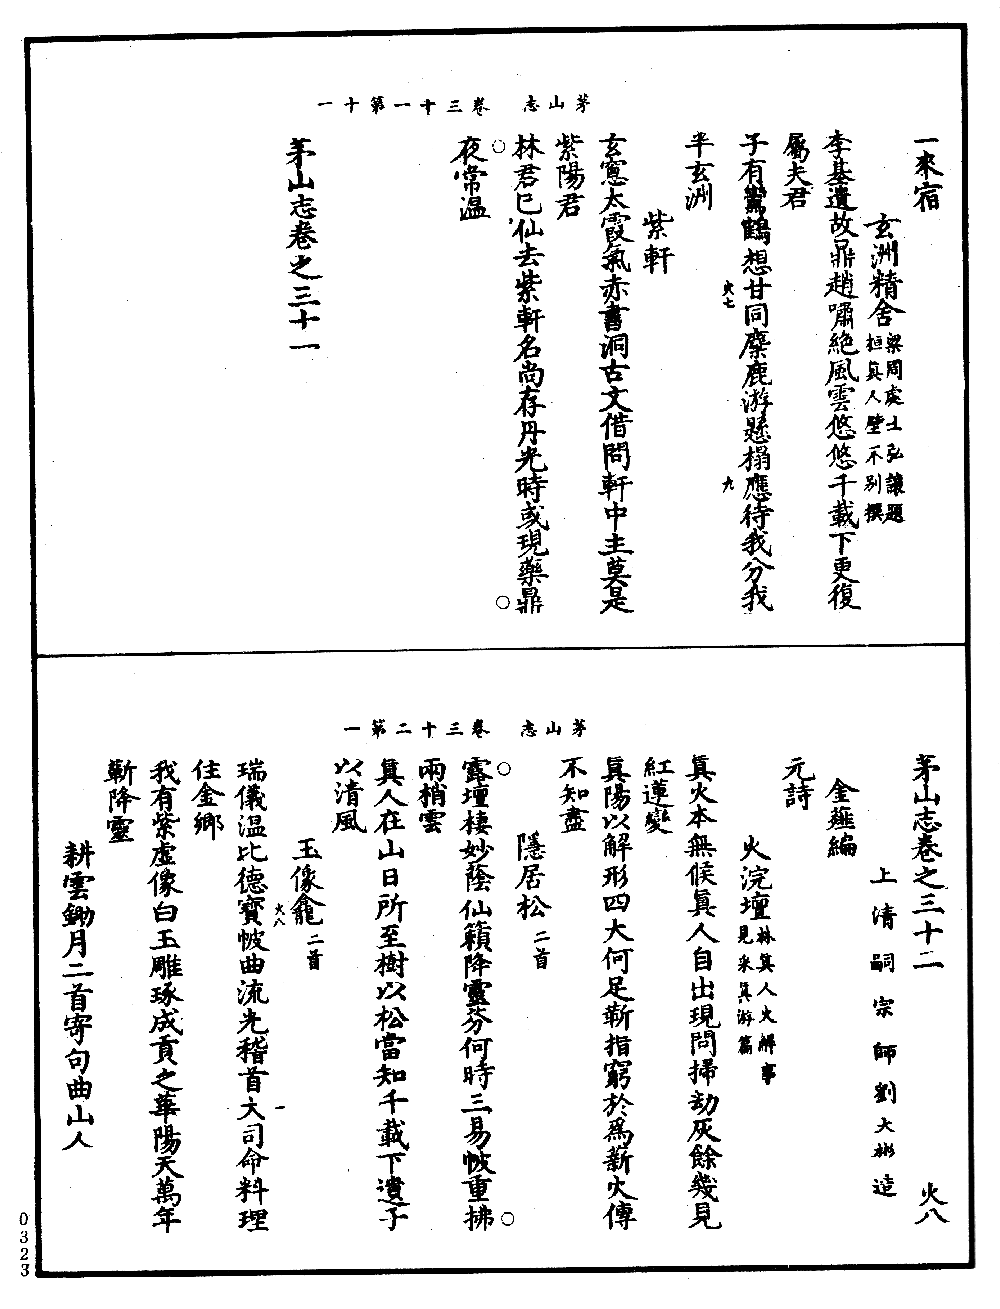 茅山志 卷三十一第十一
一來宿
玄洲精舍 梁周處士弘讓題
桓真人壁不別撰
李基遺故鼎趙嘯絶風雲悠悠千載下更復
屬夫君
子有鸞鶴想甘同麋鹿游懸榻應待我分我
火七
九
半玄洲
紫軒
玄窻太霞氣赤書洞古文借問軒中主莫是
紫陽君
林君已仙去紫軒名尚存丹光時或現藥鼎
夜常温
茅山志卷之三十一
茅山志 卷三十二第一
茅山志卷之三十二 火八
上清嗣宗師劉大彬造
金薤編
元詩
火浣壇 林真人火解事
見采真游篇
真火本無候真人自出現問掃劫灰餘幾見
紅蓮變
真陽以解形四大何足蘄指窮於爲薪火傳
不知盡
隱居松 二首
露壇棲妙蔭仙籟降靈芬何時三易帔重拂
兩梢雲
真人在山日所至樹以松當知千載下遺子
以清風
玉像龕 二首
火八
一
瑞儀温比德寶帔曲流光稽首大司命料理
住金鄉
我有紫虛像白玉雕琢成貢之華陽天萬年
蘄降靈
耕雲鋤月二首寄句曲山人
0323